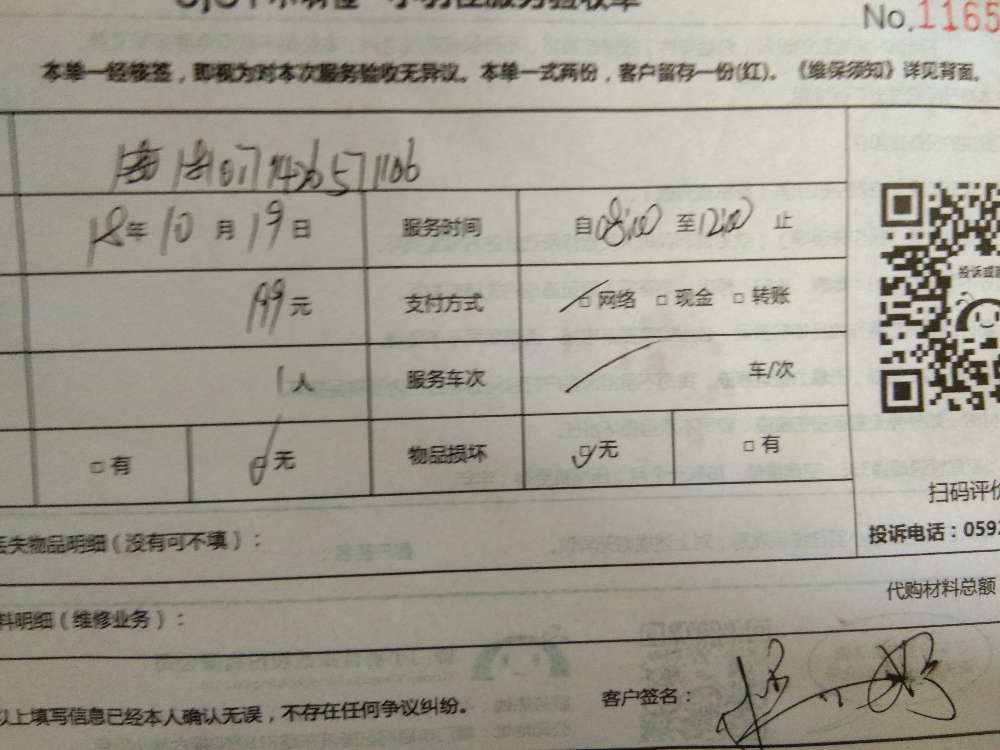 小羽佳服务验收单
No.1165
本单一经核签，即视为对本次服务验收无异议。本单一式两份，客户留存一份(红)。《维保须知》详见背面。
18年10月19日 服务时间 自08:00至12:00止
199元 支付方式 □网络 □现金 □转账
投诉或
1人 服务车次 车/次
□有 无 物品损坏 无 □有
扫码评价
丢失物品明细（没有可不填）：
投诉电话：0592
代购材料总额
料明细（维修业务）：
以上填写信息已经本人确认无误，不存在任何争议纠纷。 客户签名：